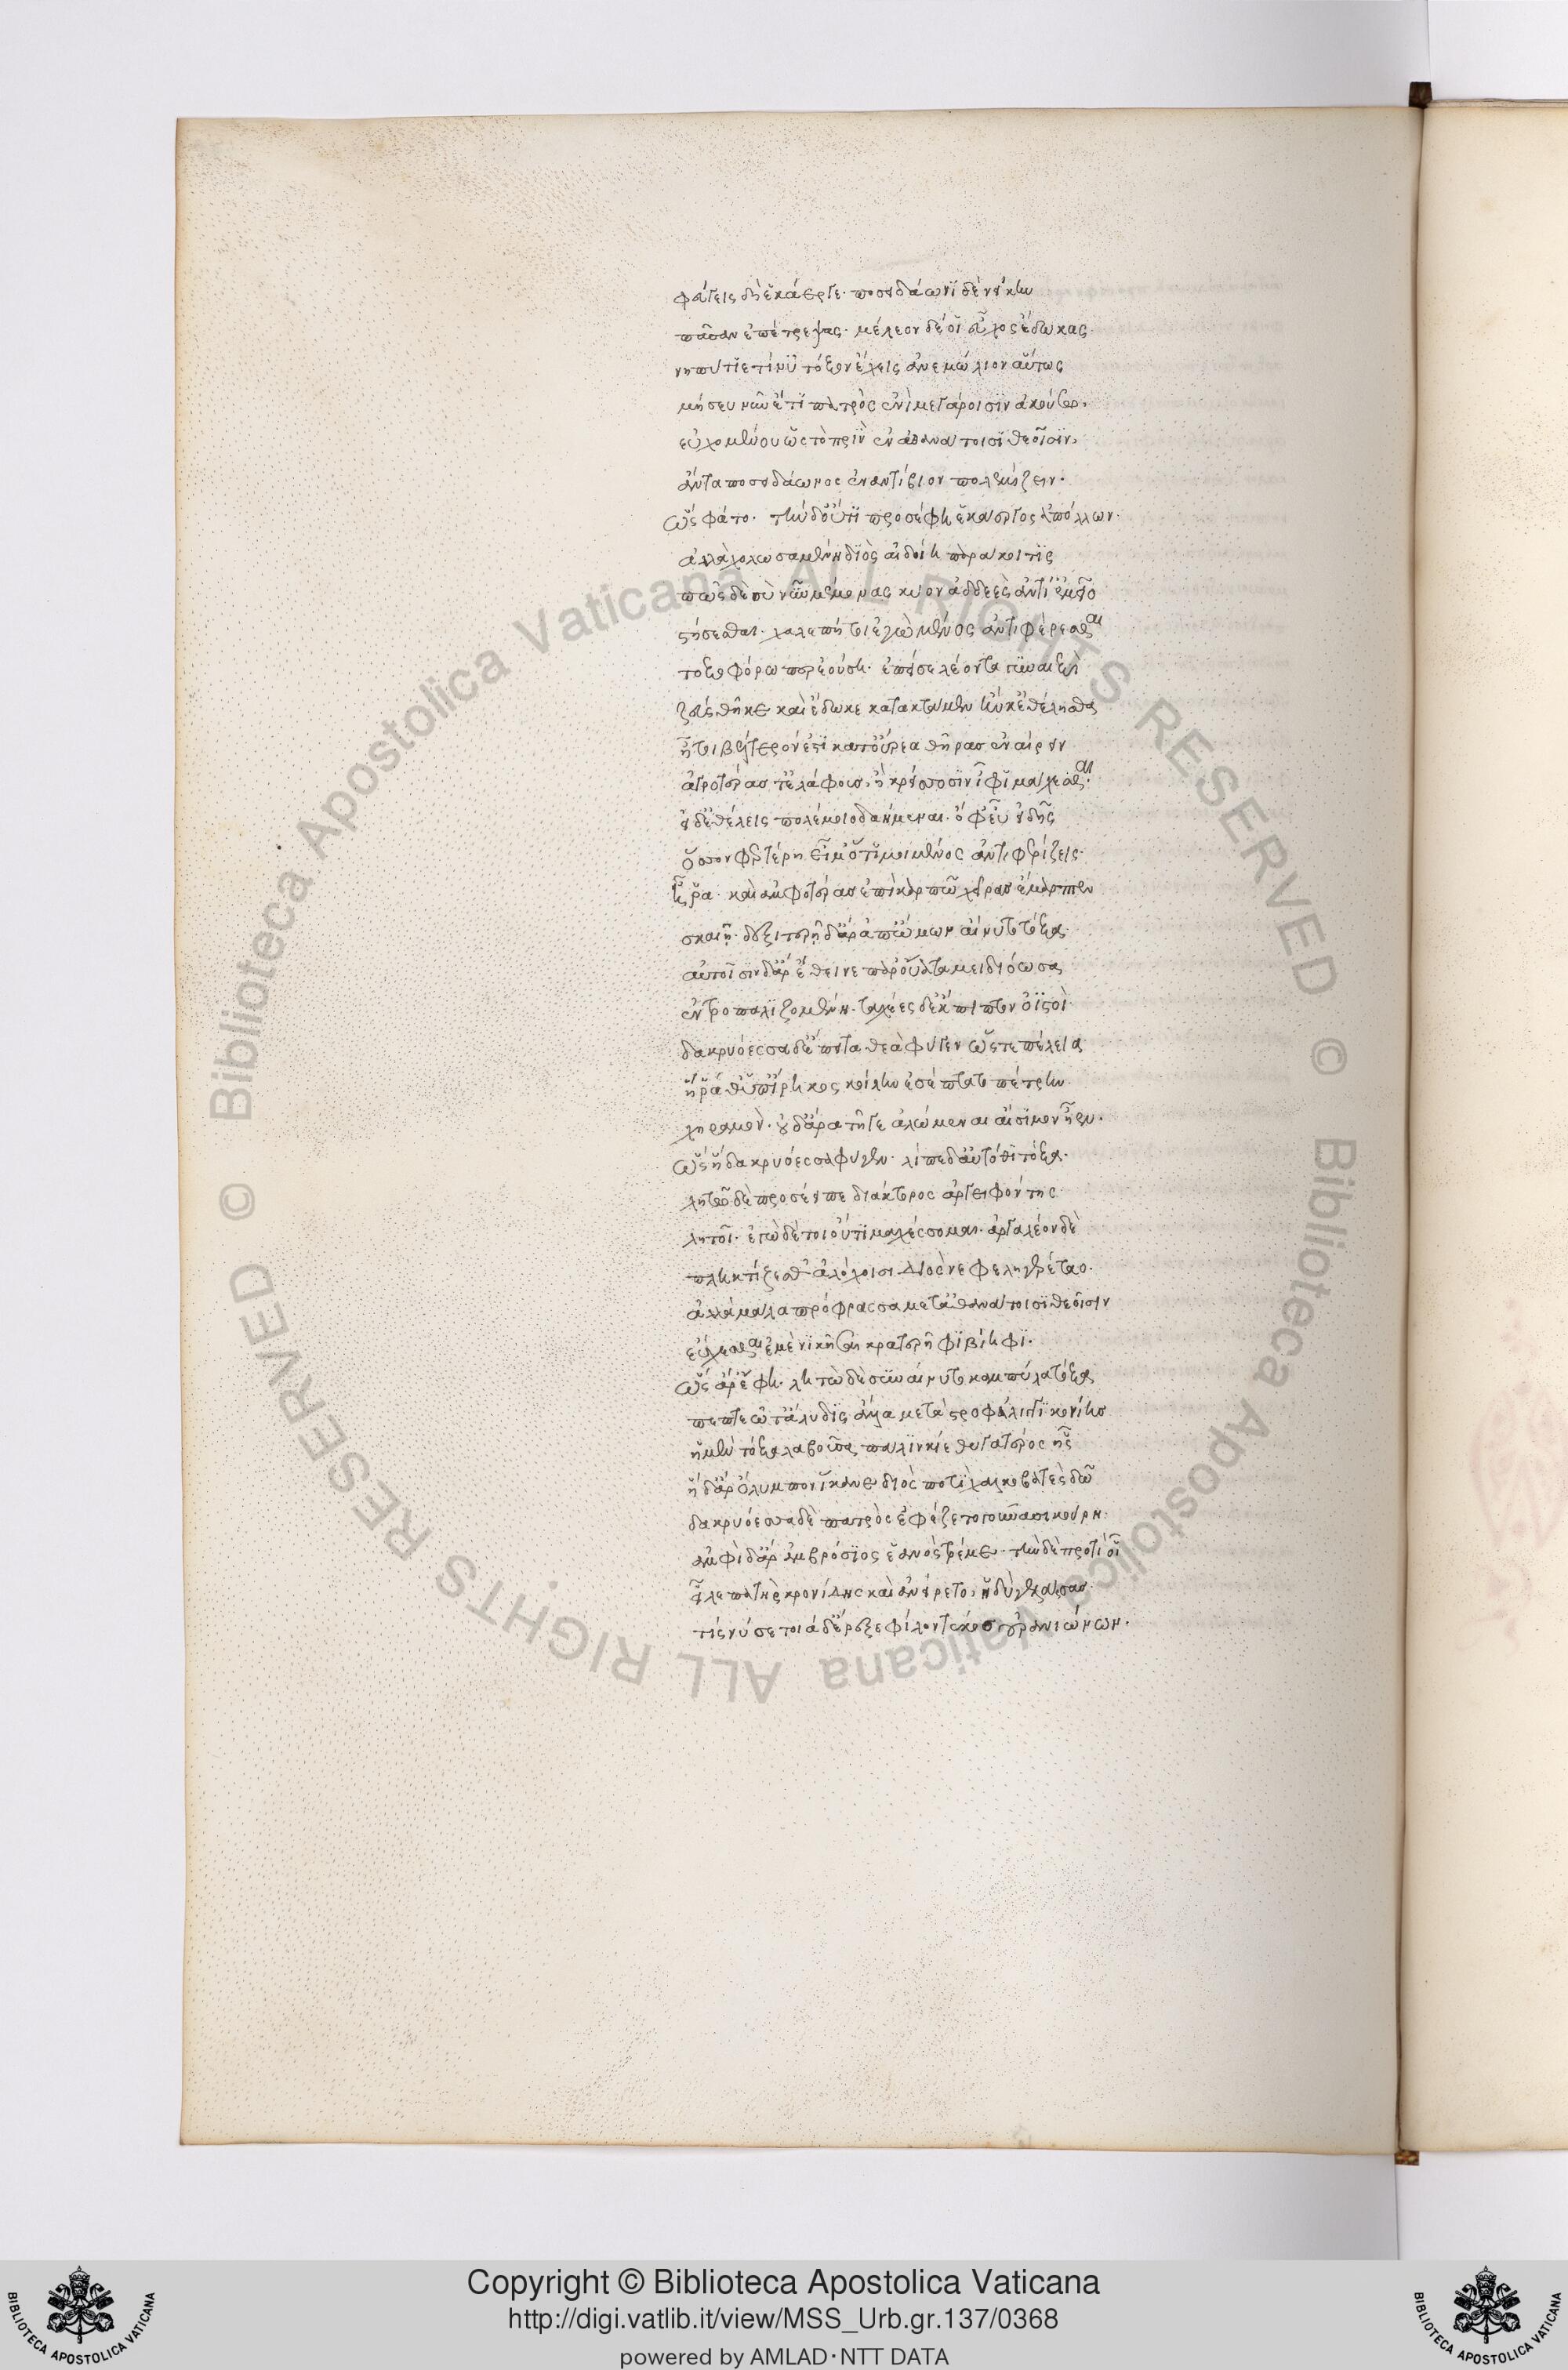 φεύγεις δὴ ἑκάεργε· ποσειδάωνϊ δὲ νίκην
πᾶσαν ἐπέτρεψας· μέλεον δέ οἱ εὖχος ἔδωκας·
νηπύτιε τί νῦ τόξον ἔχεις ἀνεμώλιον αὔτως
μή σευ νῦν ἔτι πατρὸς ἐνὶ μεγάροισϊν ἀκούσω,
εὐχομένου ὣς τὸ πρὶν ἐν ἀθανάτοισϊ θεοῖσϊν,
ἄντα ποσειδάωνος ἐναντίβιον πολεμίζειν·
ὣς φάτο· τὴν δ' οὔτϊ προσέφη ἑκάεργος ἀπόλλων·
ἀλλὰ χολωσαμένη διὸς αἰδοίη παράκοιτϊς
πῶς δὲ σὺ νῦν μέμονας κύον ἀδδεὲς ἀντί' ἐμεῖο
στήσεσθαι· χαλεπή τοι ἐγὼ μένος ἀντιφέρεσθαι
τοξοφόρω περ ἐούση· ἐπεί σε λέοντα γϋναιξὶ
ζεὺς θῆκε καὶ ἔδωκε κατακτάμεν ἥν κ' ἐθέλησθα
ἤτοι βέλτερόν ἐστϊ κατ' οὔρεα θῆρας ἐναίρειν
ἀγροτέρας τ' ἐλάφους, ἢ κρείσσοσϊν ἶφϊ μάχεσθαι·
εἰ δ' ἐθέλεις πολέμοιο δαήμεναι· ὄφρ' εὖ εἰδῇς
ὅσσον φερτέρη εἴμ' ὅτϊ μοι μένος ἀντιφερίζεις·
ἦ ῥα· καὶ ἀμφοτέρας ἐπὶ καρπῶ χεῖρας ἔμαρπτεν
σκαιῇ· δεξιτερῇ δ' ἄρ' ἀπ' ὤμων αἴνυτο τόξα·
αὐτοῖσϊν δ' ἄρ' ἔθεινε παρ' οὔατα μειδιόωσα
ἐντροπαλϊζομένην· ταχέες δ' ἔκπιπτον ὀϊστοὶ·
δακρυόεσσα δ' ἔπειτα θεὰ φύγεν ὥς τε πέλεια
ἥ ῥά θ' ὑπ' ἴρηκος κοίλην ἐσέπτατο πέτρην·
χηραμὸν· οὐδ' ἄρα τῆγε ἁλώμεναι αἴσϊμον ἦεν·
ὣς ἡ δακρυόεσσα φύγεν· λίπε δ' αὐτόθϊ τόξα·
λητὼ δὲ προσέειπε διάκτορος ἀργειφόντης
λητοῖ· ἐγὼ δέ τοι οὔτϊ μαχέσομαι· ἀργαλέον δὲ
πληκτίζεσθ' ἀλόχοισι Διὸς νεφεληγερέταο·
ἀλλὰ μάλα πρόφρασσα μετ' ἀθανάτοισϊ θεοῖσιν
εὔχεσθαι ἐμὲ νϊκῆσαι κρατερῆφϊ βίηφϊ·
ὣς ἄρ' ἔφη· λητὼ δὲ σϋναίνυτο καμπύλα τόξα
πεπτεῶτ' ἄλυδϊς ἄλλα μετὰ στροφάλιγγϊ κονίης
ἡ μὲν τόξα λαβοῦσα παλϊν κίε θυγατέρος ἧς
ἡ δ' ἄρ' ὄλυμπον ἵκανε διὸς ποτϊ χαλκοβατὲς δῶ
δακρυόεσσα δὲ πατρὸς ἐφέζετο γούνασι κούρη·
ἀμφὶ δ' ἄρ' ἀμβρόσϊος ἑανὸς τρέμε· τὴν δὲ προτὶ οἷ
εἷλε πατὴρ κρονίδης καὶ ἀνείρετο, ἡδὺ γελάσσας·
τίς νύ σε τοιάδ' ἔρεξε φίλον τέκος οὐρανιώνων·
© Biblioteca Apostolica Vaticana ALL RIGHTS RESERVED © Biblioteca Apostolica Vaticana ALL RIGHTS RESERVED
BIBLIOTECA APOSTOLICA VATICANA
Copyright © Biblioteca Apostolica Vaticana
http://digi.vatlib.it/view/MSS_Urb.gr.137/0368
powered by AMLAD·NTT DATA
BIBLIOTECA APOSTOLICA VATICANA